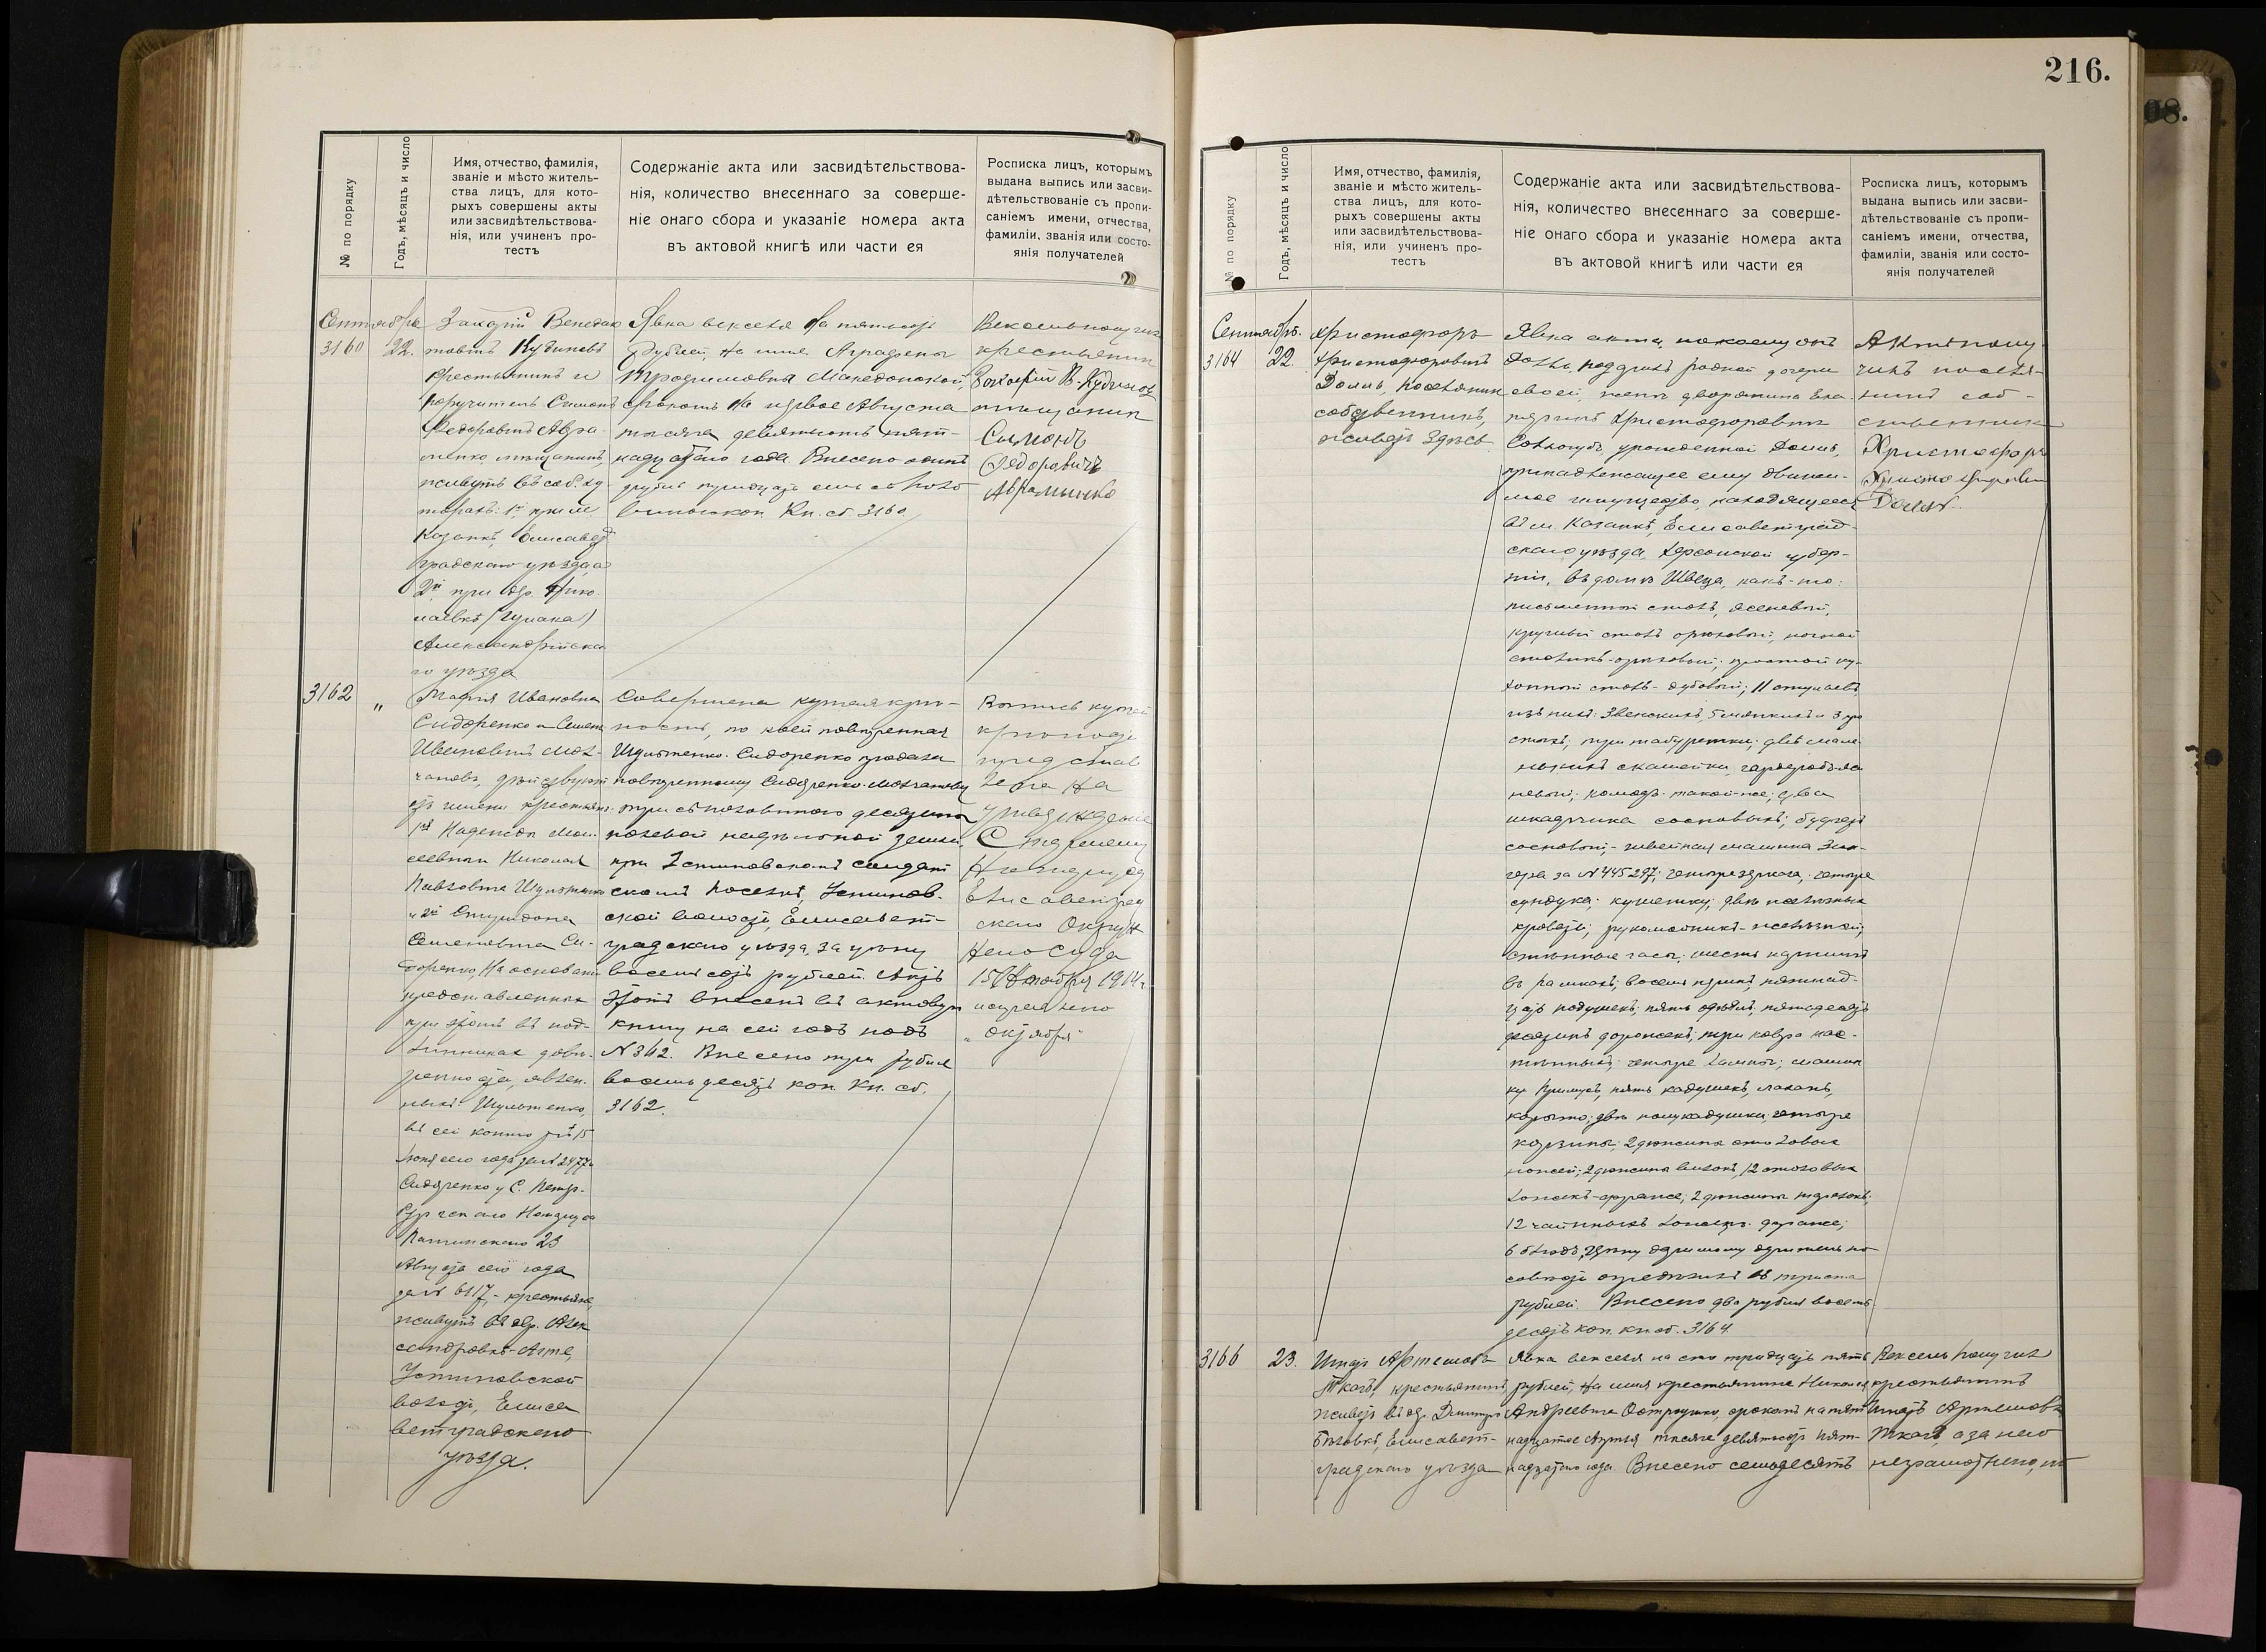 216.
98.
№ по порядку
Годъ, мѣсяцъ и число
Имя, отчество, фамилія,
званіе и мѣсто житель-
ства лицъ, для кото-
рыхъ совершены акты
или засвидѣтельствова-
нія, или учиненъ про-
тестъ
Содержаніе акта или засвидѣтельствова-
нія, количество внесеннаго за соверше-
ніе онаго сбора и указаніе номера акта
въ актовой книгѣ или части ея
Росписка лицъ, которымъ
выдана выпись или засви-
дѣтельствованіе съ пропи-
саніемъ имени, отчества,
фамиліи, званія или состо-
янія получателей
Сентября
3160 22.
Захарій Венедик
товичъ Кудиновъ
крестьянинъ и
поручитель Симонъ
Федоровичъ Авра-
менко, мѣщанинъ,
живутъ въ соб. ху-
торахъ: 1й при м.
Казанкѣ, Елисавет
градскаго уѣзда, а
2й при дер. Нико
лаевкѣ
Александрійска
го уѣзда
Явка векселя на пятьсотъ
рублей, на имя Аграфены
Трофимовны Македонской,
срокомъ на первое Августа
тысяча девятьсотъ пят-
надцатаго года. Внесено одинъ
рубль тридцать семь съ полов
виною коп. Кн. сб. 3160.
Вексель получил
крестьянин
Захарій В. Кудинов
мещанин
Симонъ
Федоровичъ
Авраменко
3162 "
Марія Ивановна
Сидоренко и Семен
Ивановичъ Мол-
чановъ, дѣйствуют
отъ имени крестьян:
1й Надежда Мои-
сеевны Николай
Павловича
и 2й Спиридона
Семеновича Си-
доренко, на основани
представленных
при этомъ въ под-
линникахъ довѣ-
ренностей, явлен-
ныхъ:
въ сей конторѣ 15
Іюня сего года за № 2477 и
Сидоренко у С. Петр-
бургскаго Нотаріуса
23
Августа сего года
за № 6117, - крестьяне,
живутъ въ дер. Алек
сандровкѣ-
Устиновской
волости, Елиса
ветградскаго
уѣзда.
Совершена купчая крѣ-
пость, по коей повѣренная
Сидоренко продала
повѣренному Сидоренко - Молчанову
три съ половиною десятины
полевой надѣльной земли,
при Устиновскомъ солдат
скомъ поселкѣ, Устинов-
ской волости, Елисавет-
градскаго уѣзда, за цѣну
восемьсотъ рублей. Актъ
этотъ внесенъ въ актовую
книгу на сей годъ подъ
№ 342. Внесено три рубля
восемьдесятъ коп. Кн. сб.
3162.
Выпись купчей
крѣпости
представ
лена на
утвержденіе
Старшему
Нотаріусу
Елисаветград
скаго Окруж
наго Суда
15 Октября 1914 г.
исправлено
„октября"
№ по порядку
Годъ, мѣсяцъ и число
Имя, отчество, фамилія,
званіе и мѣсто житель-
ства лицъ, для кото-
рыхъ совершены акты
или засвидѣтельствова-
нія, или учиненъ про-
тестъ
Содержаніе акта или засвидѣтельствова-
нія, количество внесеннаго за соверше-
ніе онаго сбора и указаніе номера акта
въ актовой книгѣ или части ея
Росписка лицъ, которымъ
выдана выпись или засви-
дѣтельствованіе съ пропи-
саніемъ имени, отчества,
фамиліи, званія или состо-
янія получателей
Сентября.
3164 22.
Христофоръ
Христофоровичъ
поселянин
собственникъ,
живетъ здѣсь
Явка акта, по коему онъ
подарилъ родной дочери
своей, женѣ дворянина Ека
теринѣ Христофоровнѣ
урожденной
принадлежащее ему движи-
мое имущество, находящееся
въ м. Казанкѣ, Елисаветград-
скаго уѣзда, Херсонской губер-
ніи, въ домѣ Швеца, какъ-то:
письменный столъ, ясеневый,
круглый столъ орѣховый, ночной
столикъ-орѣховый; простой ку-
хонный столъ - дубовый; 11 стульевъ,
изъ нихъ: 3 венскихъ, 5 мягкихъ и 3 про
стыхъ; три табуретки; двѣ мале-
нькихъ скамейки, гардеробъ
комодъ такой-же; два
шкафчика сосновыхъ; буфетъ
сосновый; швейная машина Зин-
гера за № 445297; четыре зеркала; четыре
сундука; кушетку; двѣ желѣзныхъ
кровати; рукомойникъ - желѣзный,
стѣнные часы; шесть картинъ
въ рамкахъ; восемь перинъ, пятнад-
цать подушекъ, пять одѣялъ, пятьдесятъ
дорожекъ; три ковра нас-
тѣнныхъ; четыре лампы; машин
ку Примусъ, пять кадушекъ,
корыто; двѣ полукадушки, четыре
корзины; 2 дюжины столовых
ножей; 2 дюжины вилокъ, 12 столовыхъ
ложекъ-фраже; 2 дюжины тарелокъ;
12 чайныхъ ложекъ фраже;
6 блюдъ, цѣну даримому даритель по
совѣсти опредѣлилъ въ триста
рублей. Внесено два рубля восемь
десятъ коп. кн. сб. 3164.
Актъ полу-
чилъ поселя-
нинъ соб-
ственник
Христофоръ
3166 23.
Игнатъ Артемовъ
Ткачъ, крестьянинъ,
живетъ въ д. Дмитро
Елисавет-
градскаго уѣзда
Явка векселя на сто тридцать пять
рублей, на имя крестьянина Николая
Андреевича срокомъ на пят
надцатое Августа тысяча девятьсотъ пят-
надцатаго года. Внесено семьдесятъ
Вексель получил
крестьянинъ
Игнатъ Артемовъ
Ткачъ, а за него
неграмотнаго, по